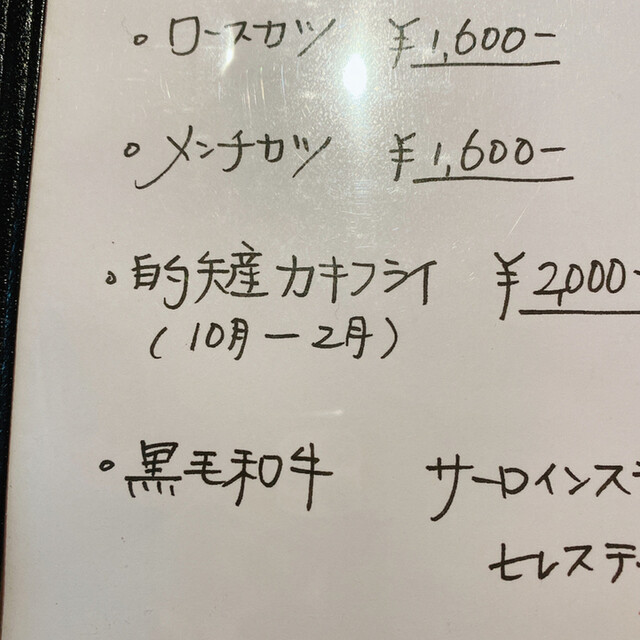 ・ロースカツ ¥1,600-
・メンチカツ ¥1,600-
・的矢産カキフライ ¥2,000-
(10月ー2月)
・黒毛和牛 サーロインステ
セレステ